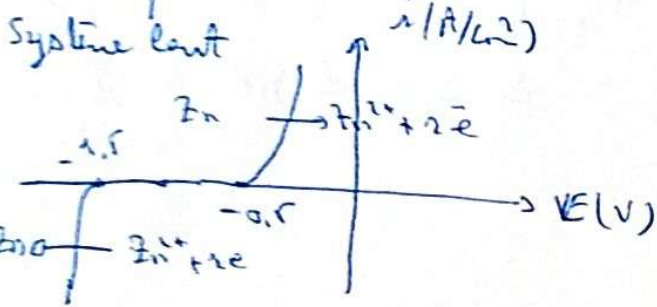 Système lent
i (A/cm²)
Zn → Zn²⁺ + 2e⁻
-1,5
-0,5
E(V)
Zn²⁺ + 2e